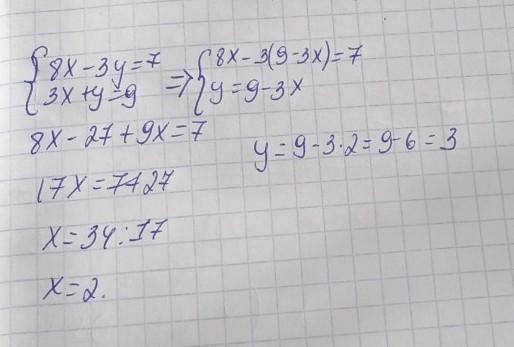 8x-3y=7 => 8x-3(9-3x)=7
3x+y=9 y=9-3x
8x-27+9x=7
y=9-3·2=9-6=3
17x=7+27
x=34:17
x=2.